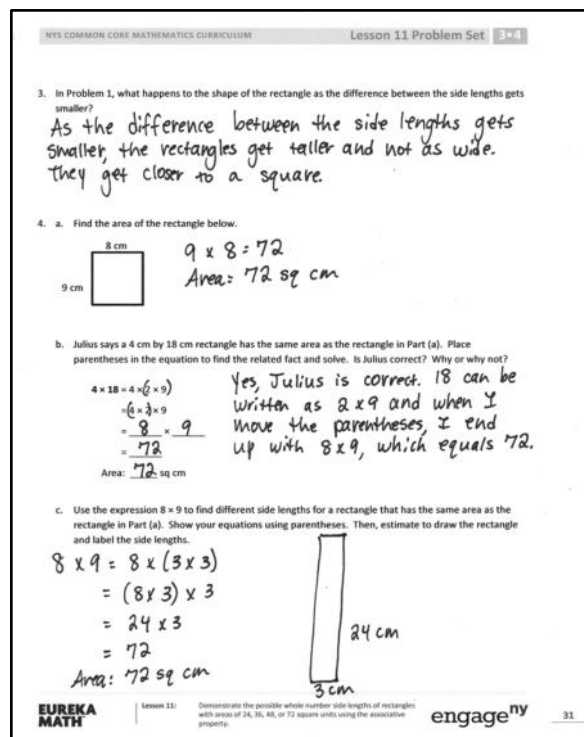 NYS COMMON CORE MATHEMATICS CURRICULUM Lesson 11 Problem Set 3•4
3. In Problem 1, what happens to the shape of the rectangle as the difference between the side lengths gets
smaller?
As the difference between the side lengths gets
smaller, the rectangles get taller and not as wide.
They get closer to a square.
4. a. Find the area of the rectangle below.
8 cm
9 cm
9 x 8 = 72
Area: 72 sq cm
b. Julius says a 4 cm by 18 cm rectangle has the same area as the rectangle in Part (a). Place
parentheses in the equation to find the related fact and solve. Is Julius correct? Why or why not?
4 × 18 = 4 × (2 × 9)
= (4 × 2) × 9
= 8 × 9
= 72
Area: 72 sq cm
Yes, Julius is correct. 18 can be
written as 2 x 9 and when I
move the parentheses, I end
up with 8 x 9, which equals 72.
c. Use the expression 8 × 9 to find different side lengths for a rectangle that has the same area as the
rectangle in Part (a). Show your equations using parentheses. Then, estimate to draw the rectangle
and label the side lengths.
8 x 9 = 8 x (3 x 3)
= (8 x 3) x 3
= 24 x 3
= 72
Area: 72 sq cm
24 cm
3 cm
EUREKA
MATH
Lesson 11:
Demonstrate the possible whole number side lengths of rectangles
with areas of 24, 36, 48, or 72 square units using the associative
property.
engageny
31